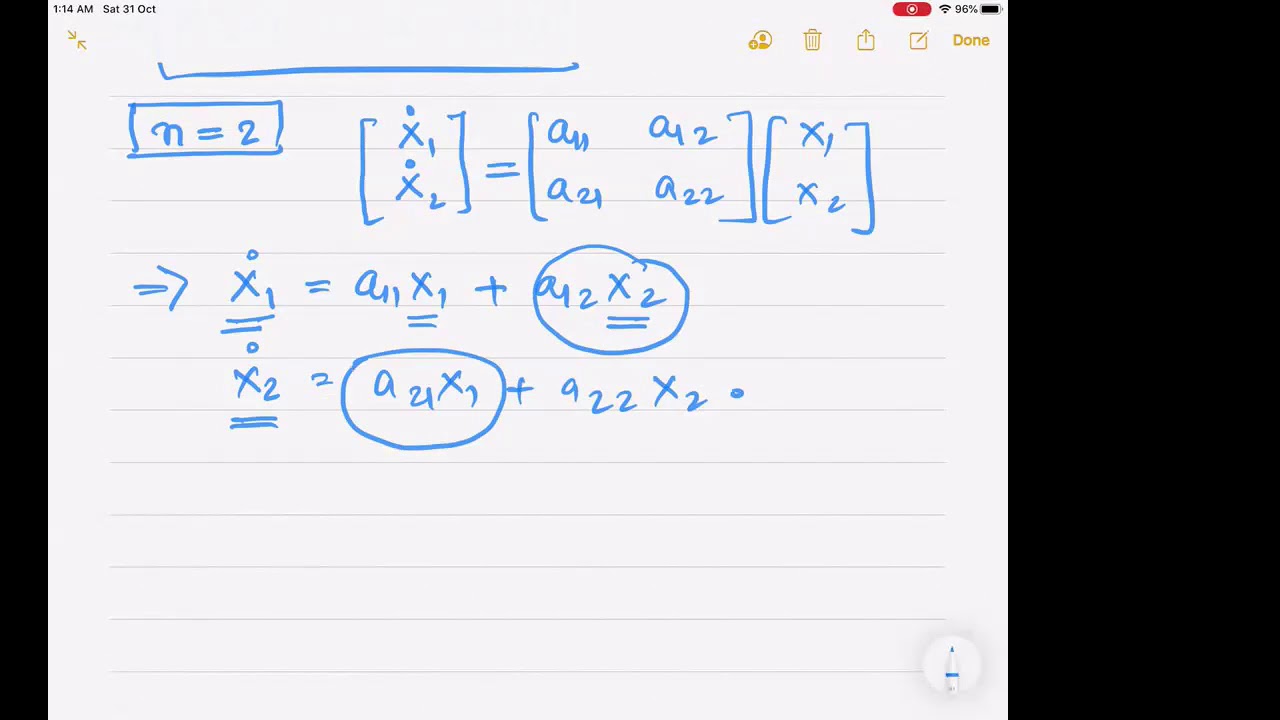 1:14 AM Sat 31 Oct 96%
Done
n = 2 [ẋ₁ ẋ₂] = [a₁₁ a₁₂ a₂₁ a₂₂] [x₁ x₂]
⇒ ẋ₁ = a₁₁ x₁ + a₁₂ x₂
ẋ₂ = a₂₁ x₁ + a₂₂ x₂ .